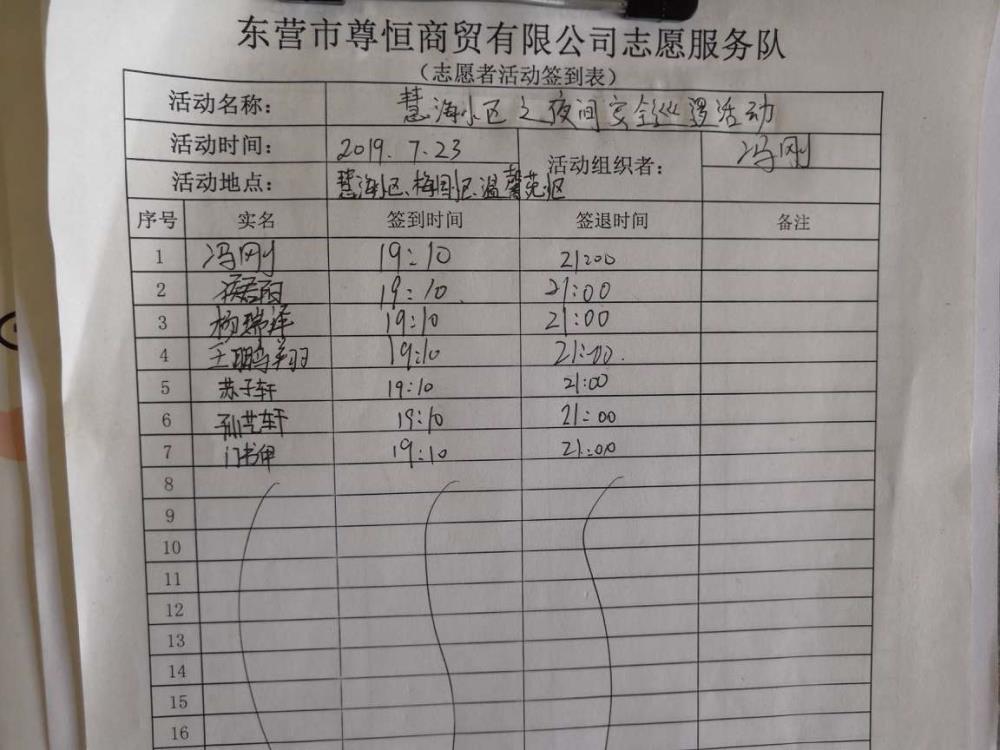 东营市尊恒商贸有限公司志愿服务队
（志愿者活动签到表）
活动名称： 慧海小区之夜间安全巡逻活动
活动时间： 2019.7.23 活动组织者： 冯刚
活动地点： 慧海小区、梅园小区、温馨苑小区
序号 实名 签到时间 签退时间 备注
1 冯刚 19:10 21:00
2 19:10 21:00
3 杨瑞泽 19:10 21:00
4 王鹏翔 19:10 21:00
5 苏子轩 19:10 21:00
6 孙艺轩 19:10 21:00
7 门书甲 19:10 21:00
8
9
10
11
12
13
14
15
16